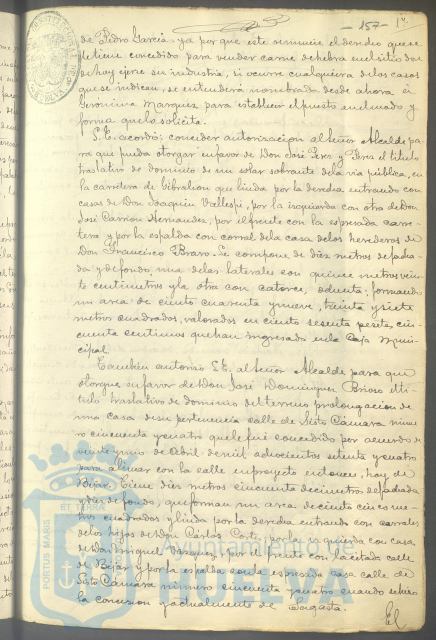 - 157 - 1º.
de Pedro García ya por que este renuncie el derecho que se
le tiene concedido para vender carne de hebra en el sitio don
de hoy ejerce su industria, si ocurre cualquiera de los casos
que se indican, se entenderá nombrada desde ahora a
Gerónima Márquez, para establecer el puesto en el modo y
forma que lo solicita.
S.E. acordó: conceder autorización al Señor Alcalde pa-
ra que pueda otorgar en favor de Don José Perez y Perez el título
traslativo de dominio de un solar sobrante de la vía pública, en
la carretera de Gibraleon que linda por la derecha entrando con
casas de Don Joaquin Vallespi, por la izquierda con otra de Don
José Carrion Hernandez, por el frente con la espresada carre-
tera y por la espalda con corral de la casa de los herederos de
Don Francisco Bravo. Se compone de diez metros de facha-
da y de fondo, una de las laterales con quince metros vein-
te centímetros y la otra con catorce, ochenta, formando
un area de ciento cuarenta y nueve, treinta y siete
metros cuadrados, valorados en ciento sesenta pesetas, cin-
cuenta centimos que han ingresado en la Caja Muni-
cipal.
Tambien autorizo S.E. al Señor Alcalde para que
otorgue en favor de Don José Dominguez Brioso el tí-
tulo traslativo de dominio del terreno prolongacion de
una casa de su pertenencia calle de Sisto Cámara núme-
ro cincuenta y cuatro que le fué concedido por acuerdo de
veinte y uno de Abril de mil ochocientos setenta y cuatro
para alinear con la calle en proyecto entonces, hoy de
Bejar. Tiene diez metros cincuenta decímetros de fachada
y diez de fondo, que forman un area de ciento cinco me-
tros cuadrados y linda por la derecha entrando con corrales
de los hijos de Don Carlos Corti, por la izquierda con casa
de Don Miguel Vazquez, por el frente con la citada calle
de Bejar y por la espalda con la espresada casa calle de
Sisto Cámara número cincuenta y cuatro cuando se hizo
la concesion y actualmente de Sagasta.
El
PORTUS MARIS
ET TERRÆ
Ayuntamiento de
HUELVA